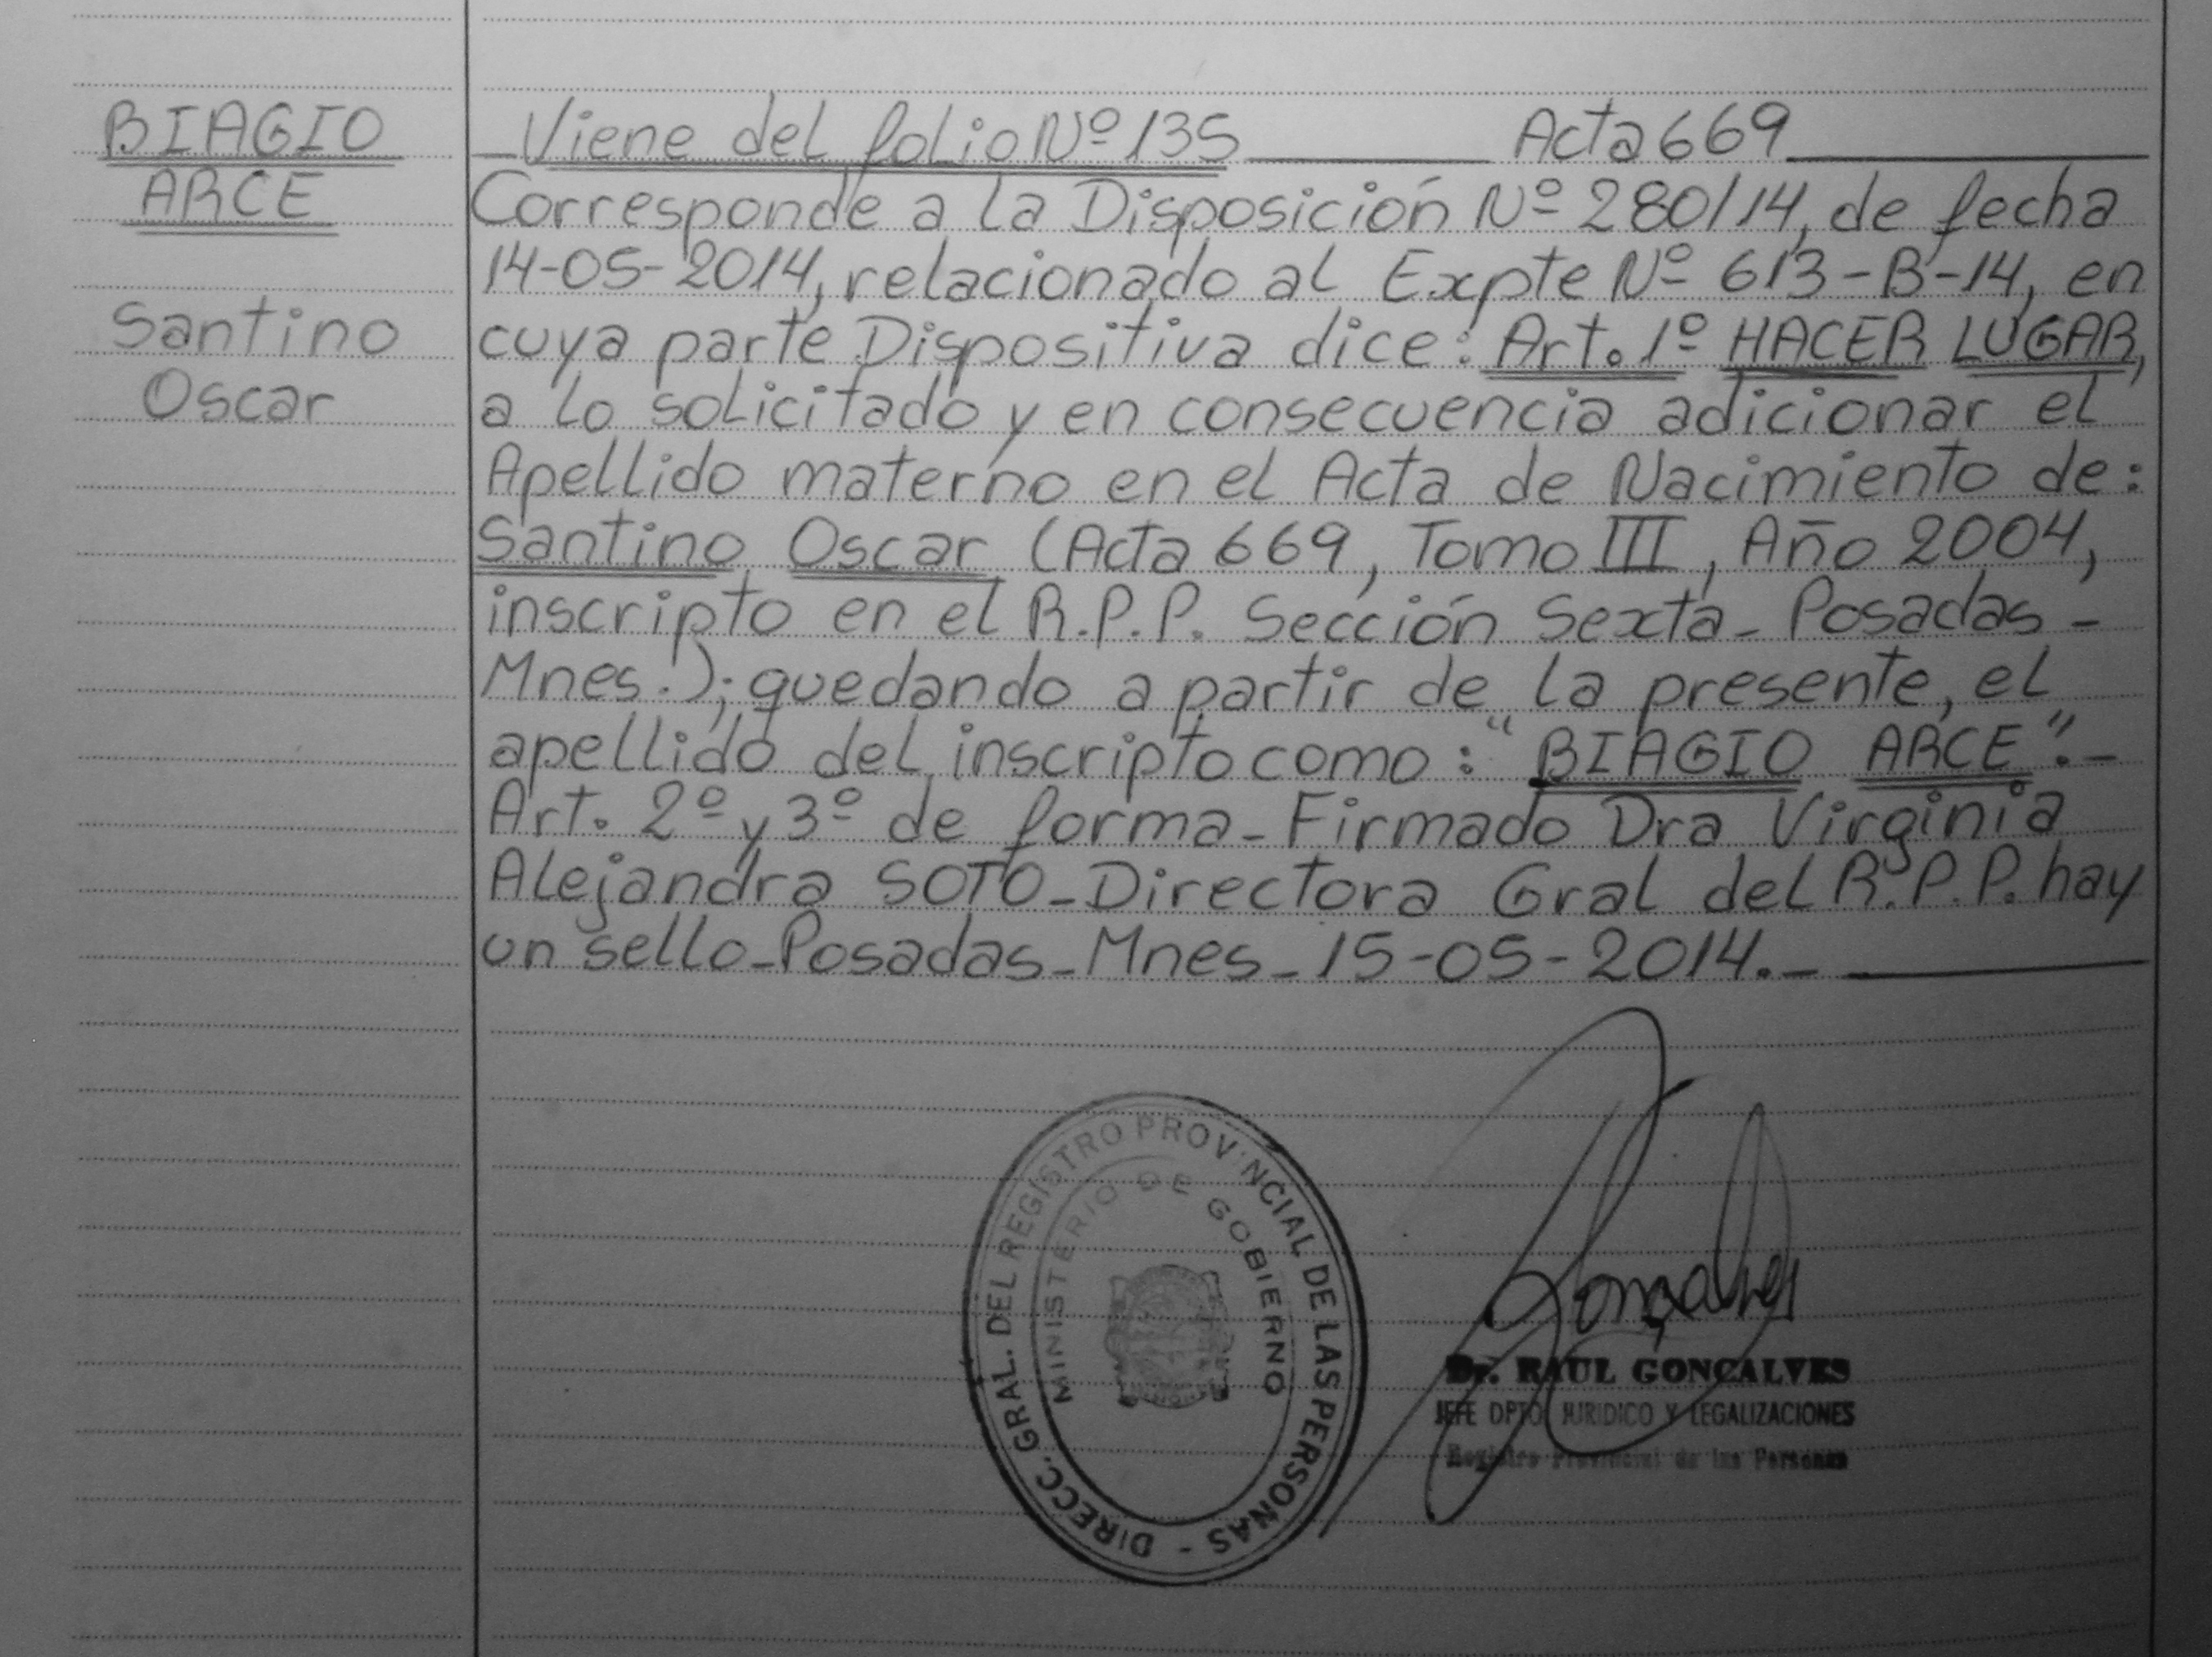 BIAGIO
ARCE
Santino
Oscar
Viene del folio Nº 135 Acta 669
Corresponde a la Disposición Nº 280/14, de fecha
14-05-2014, relacionado al Expte Nº 613-B-14, en
cuya parte Dispositiva dice: Art. 1º HACER LUGAR,
a lo solicitado y en consecuencia adicionar el
Apellido materno en el Acta de Nacimiento de:
Santino Oscar (Acta 669, Tomo III, Año 2004,
inscripto en el R.P.P. Sección Sexta - Posadas -
Mnes.); quedando a partir de la presente, el
apellido del inscripto como: "BIAGIO ARCE".-
Art. 2º y 3º de forma - Firmado Dra Virginia
Alejandra SOTO - Directora Gral del R.P.P. hay
un sello - Posadas - Mnes - 15-05-2014.-
DIRECC. GRAL. DEL REGISTRO PROVINCIAL DE LAS PERSONAS -
MINISTERIO DE GOBIERNO
Gonçalves
Dr. RAUL GONÇALVES
JEFE DPTO. JURIDICO Y LEGALIZACIONES
Registro Provincial de las Personas